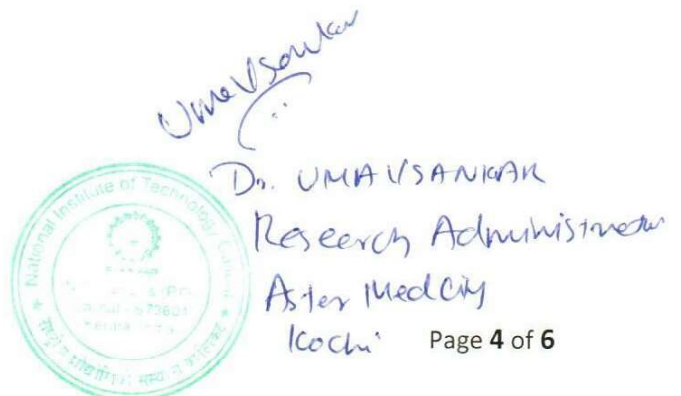 Uma V Sankar
Dr. UMA V SANKAR
Research Administrator
Aster Medcity
Kochi
Page 4 of 6
National Institute of Technology
673601